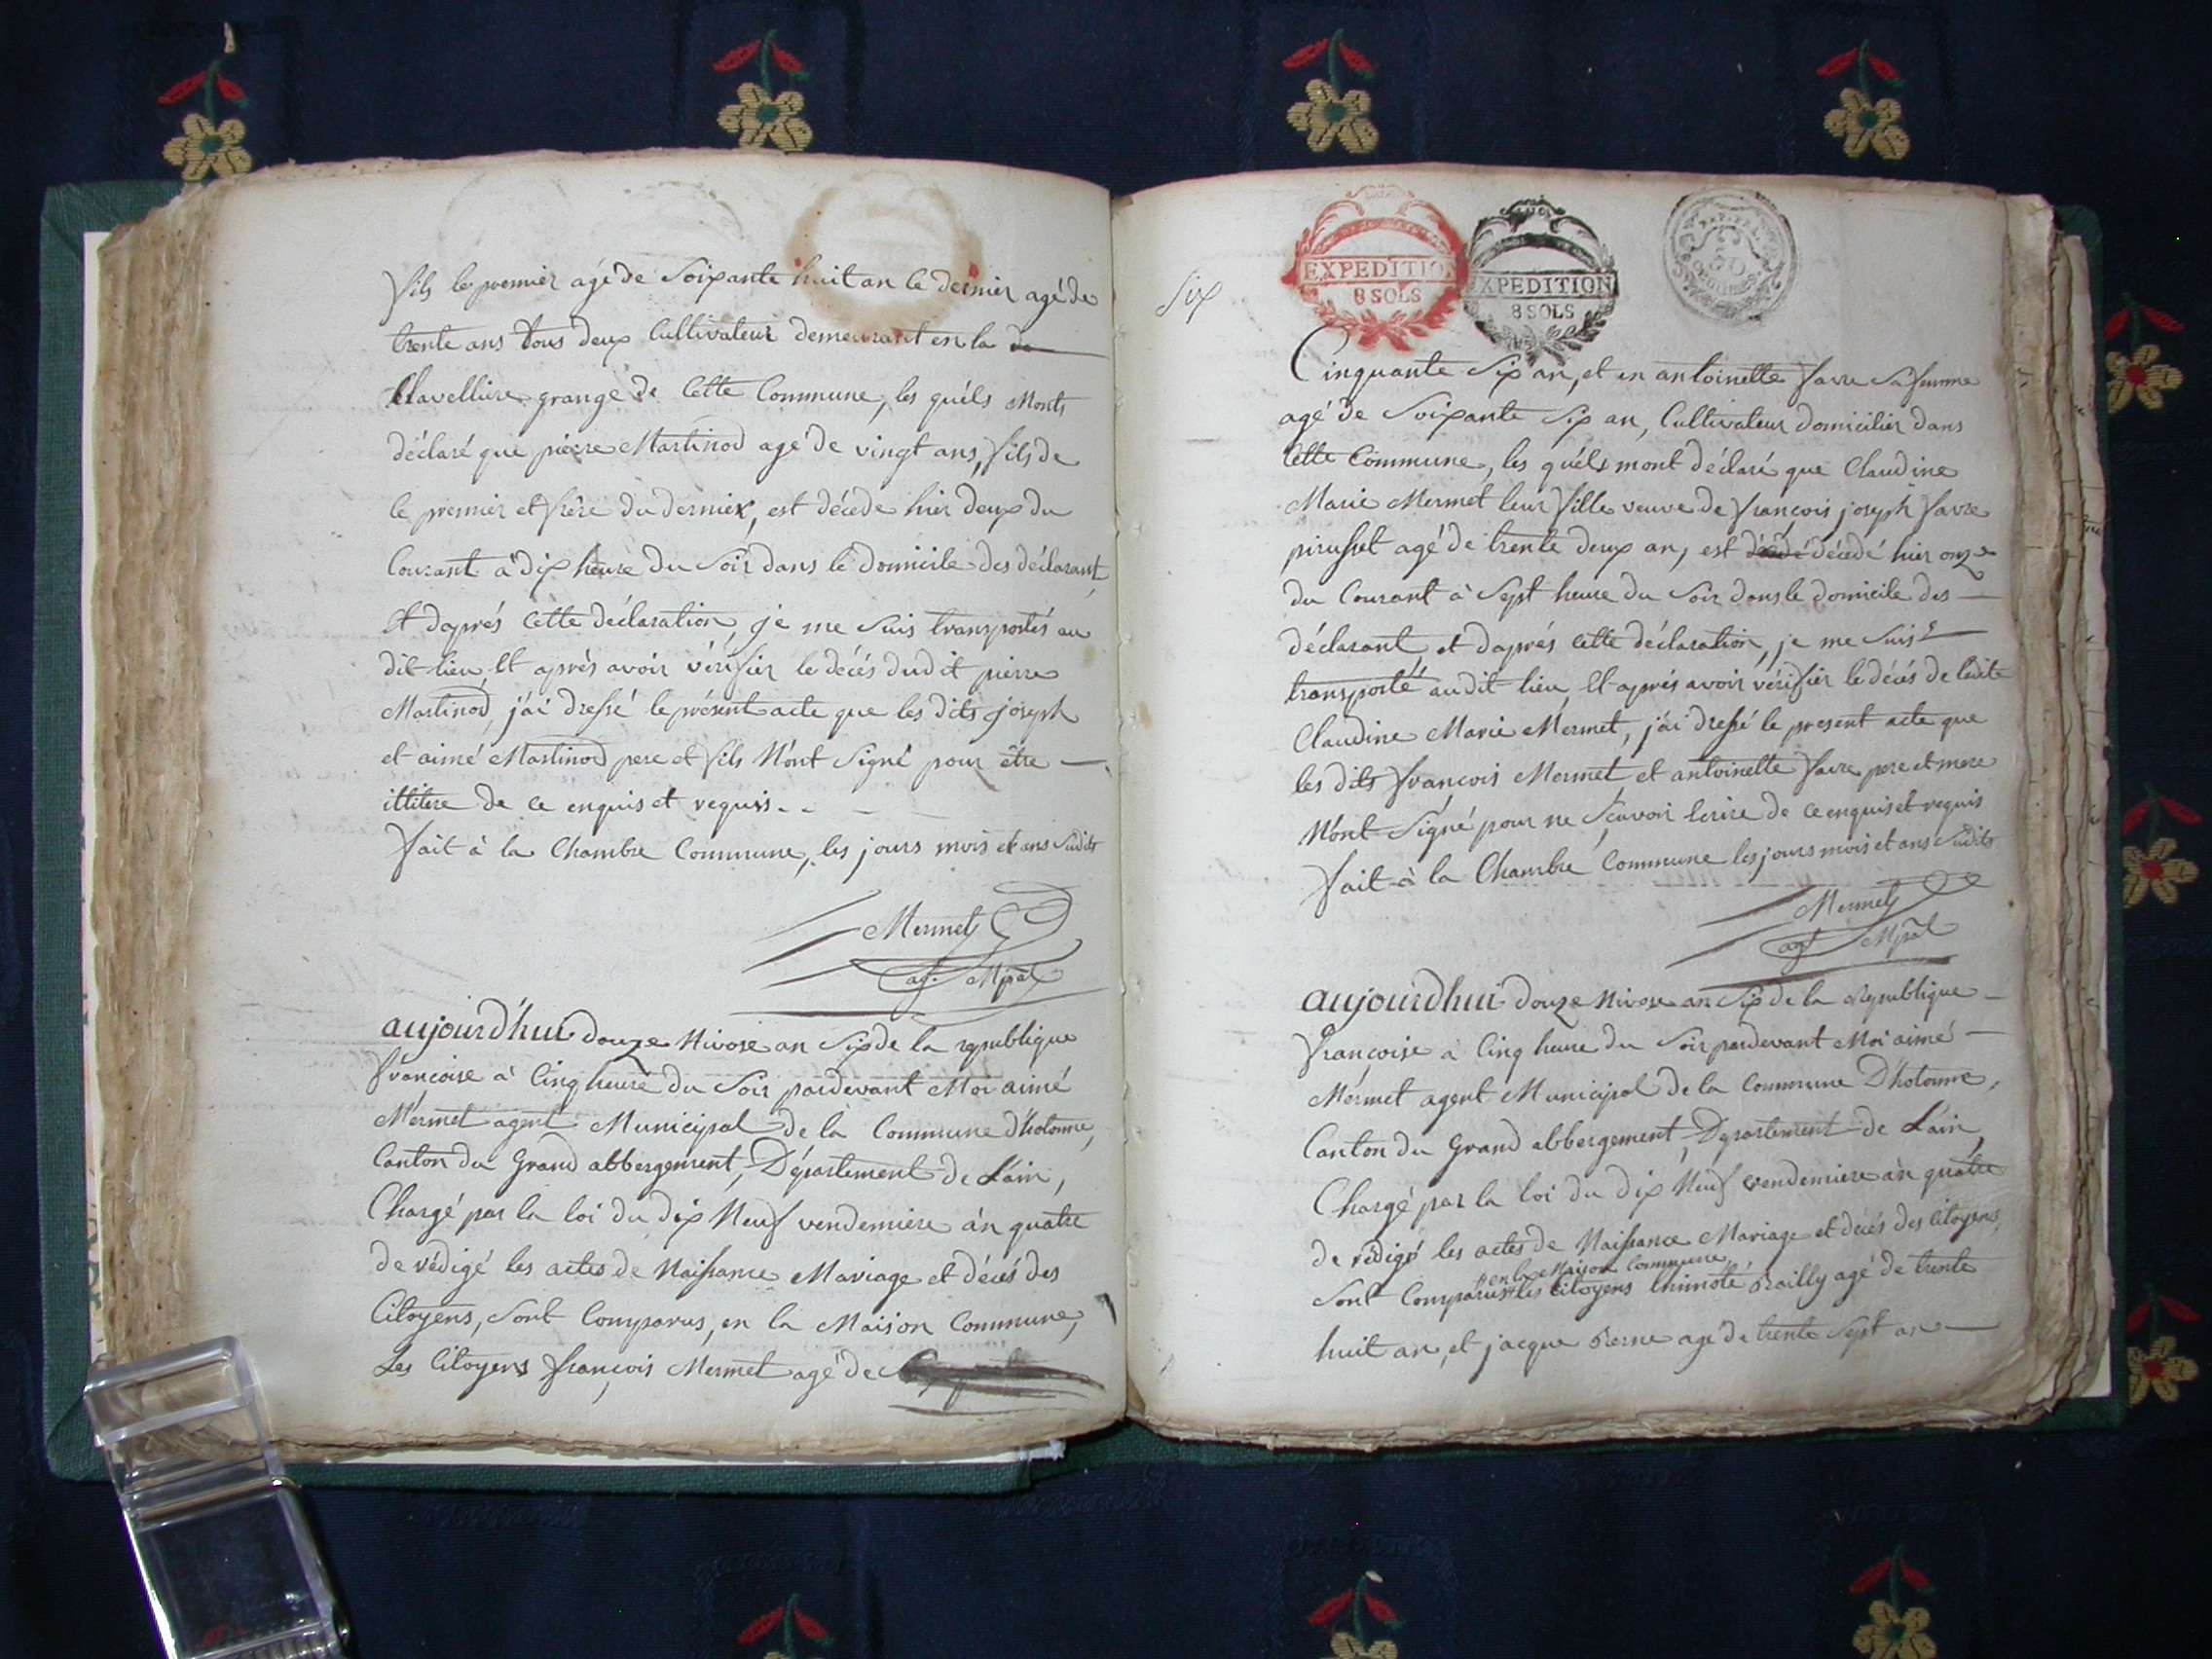 fils le premier agé de Soixante huit an le dernier agé de
trente ans tous deux Cultivateur demeurant en la
Clavelliere grange de Cette Commune, les quéls Monts
déclaré que pierre Martinod agé de vingt ans, fils de
le premier et frére du dernier, est décede hier deux du
Courant à dix heure du Soir dans le domicile des déclarant,
Et daprés Cette déclaration, je me suis transportés au
dit lieu, Et aprés avoir vérifier le décés dudit pierre
Martinod, j'ai dressé le présent acte que les dits joseph
et aimé Martinod pere et fils N'ont Signé pour être
illitere de ce enquis et requis
fait à la Chambre Commune, les jours mois et ans Sudits
Mermet
ag. Mpal
aujourd'hui douze Nivose an Six de la republique
françoise à Cinq heure du Soir pardevant Moi aimé
Mermet agent Municipal de la Commune D'hotonne,
Canton du Grand abbergement, Département de L'ain,
Chargé par la loi du dix Neuf vendemiere an quatre
de rédigé les actes de Naissance Mariage et décés des
Citoyens, Sont Comparus, en la Maison Commune,
Les Citoyens françois Mermet agé de
Six
EXPEDITION
8 SOLS
EXPEDITION
8 SOLS
Cinquante Six an, et en antoinette favre Sa femme
agé de Soixante Six an, Cultivateur domicilier dans
Cette Commune, les quéls mont déclaré que Claudine
Marie Mermet leur fille veuve de françois joseph favre
pirusset agé de trente deux an, est décedé hier onze
du Courant à Sept heure du Soir dans le domicile des
déclarant, et daprés cette déclaration, je me Suis
transporté audit lieu, Et aprés avoir vérifier le décés de ladite
Claudine Marie Mermet, j'ai dressé le present acte que
les dits françois Mermet et antoinette favre pere et mere
N'ont Signé pour ne Scavoir Ecrire de ce enquis et requis
fait à la Chambre Commune les jours mois et ans Sudits
Mermet
agt Mpal
aujourdhui douze Nivose an Six de la Republique
françoise à Cinq heure du Soir pardevant Moi aimé
Mermet agent Municipal de la Commune D'hotonne,
Canton du Grand abbergement, Département de L'ain,
Chargé par la loi du dix Neuf vendemiere an quatre
de rédigé les actes de Naissance Mariage et décés des Citoyens,
en la Maison Commune
Sont Comparus les Citoyens thimoté Bailly agé de trente
huit an, et jacque Berne agé de trente Sept an